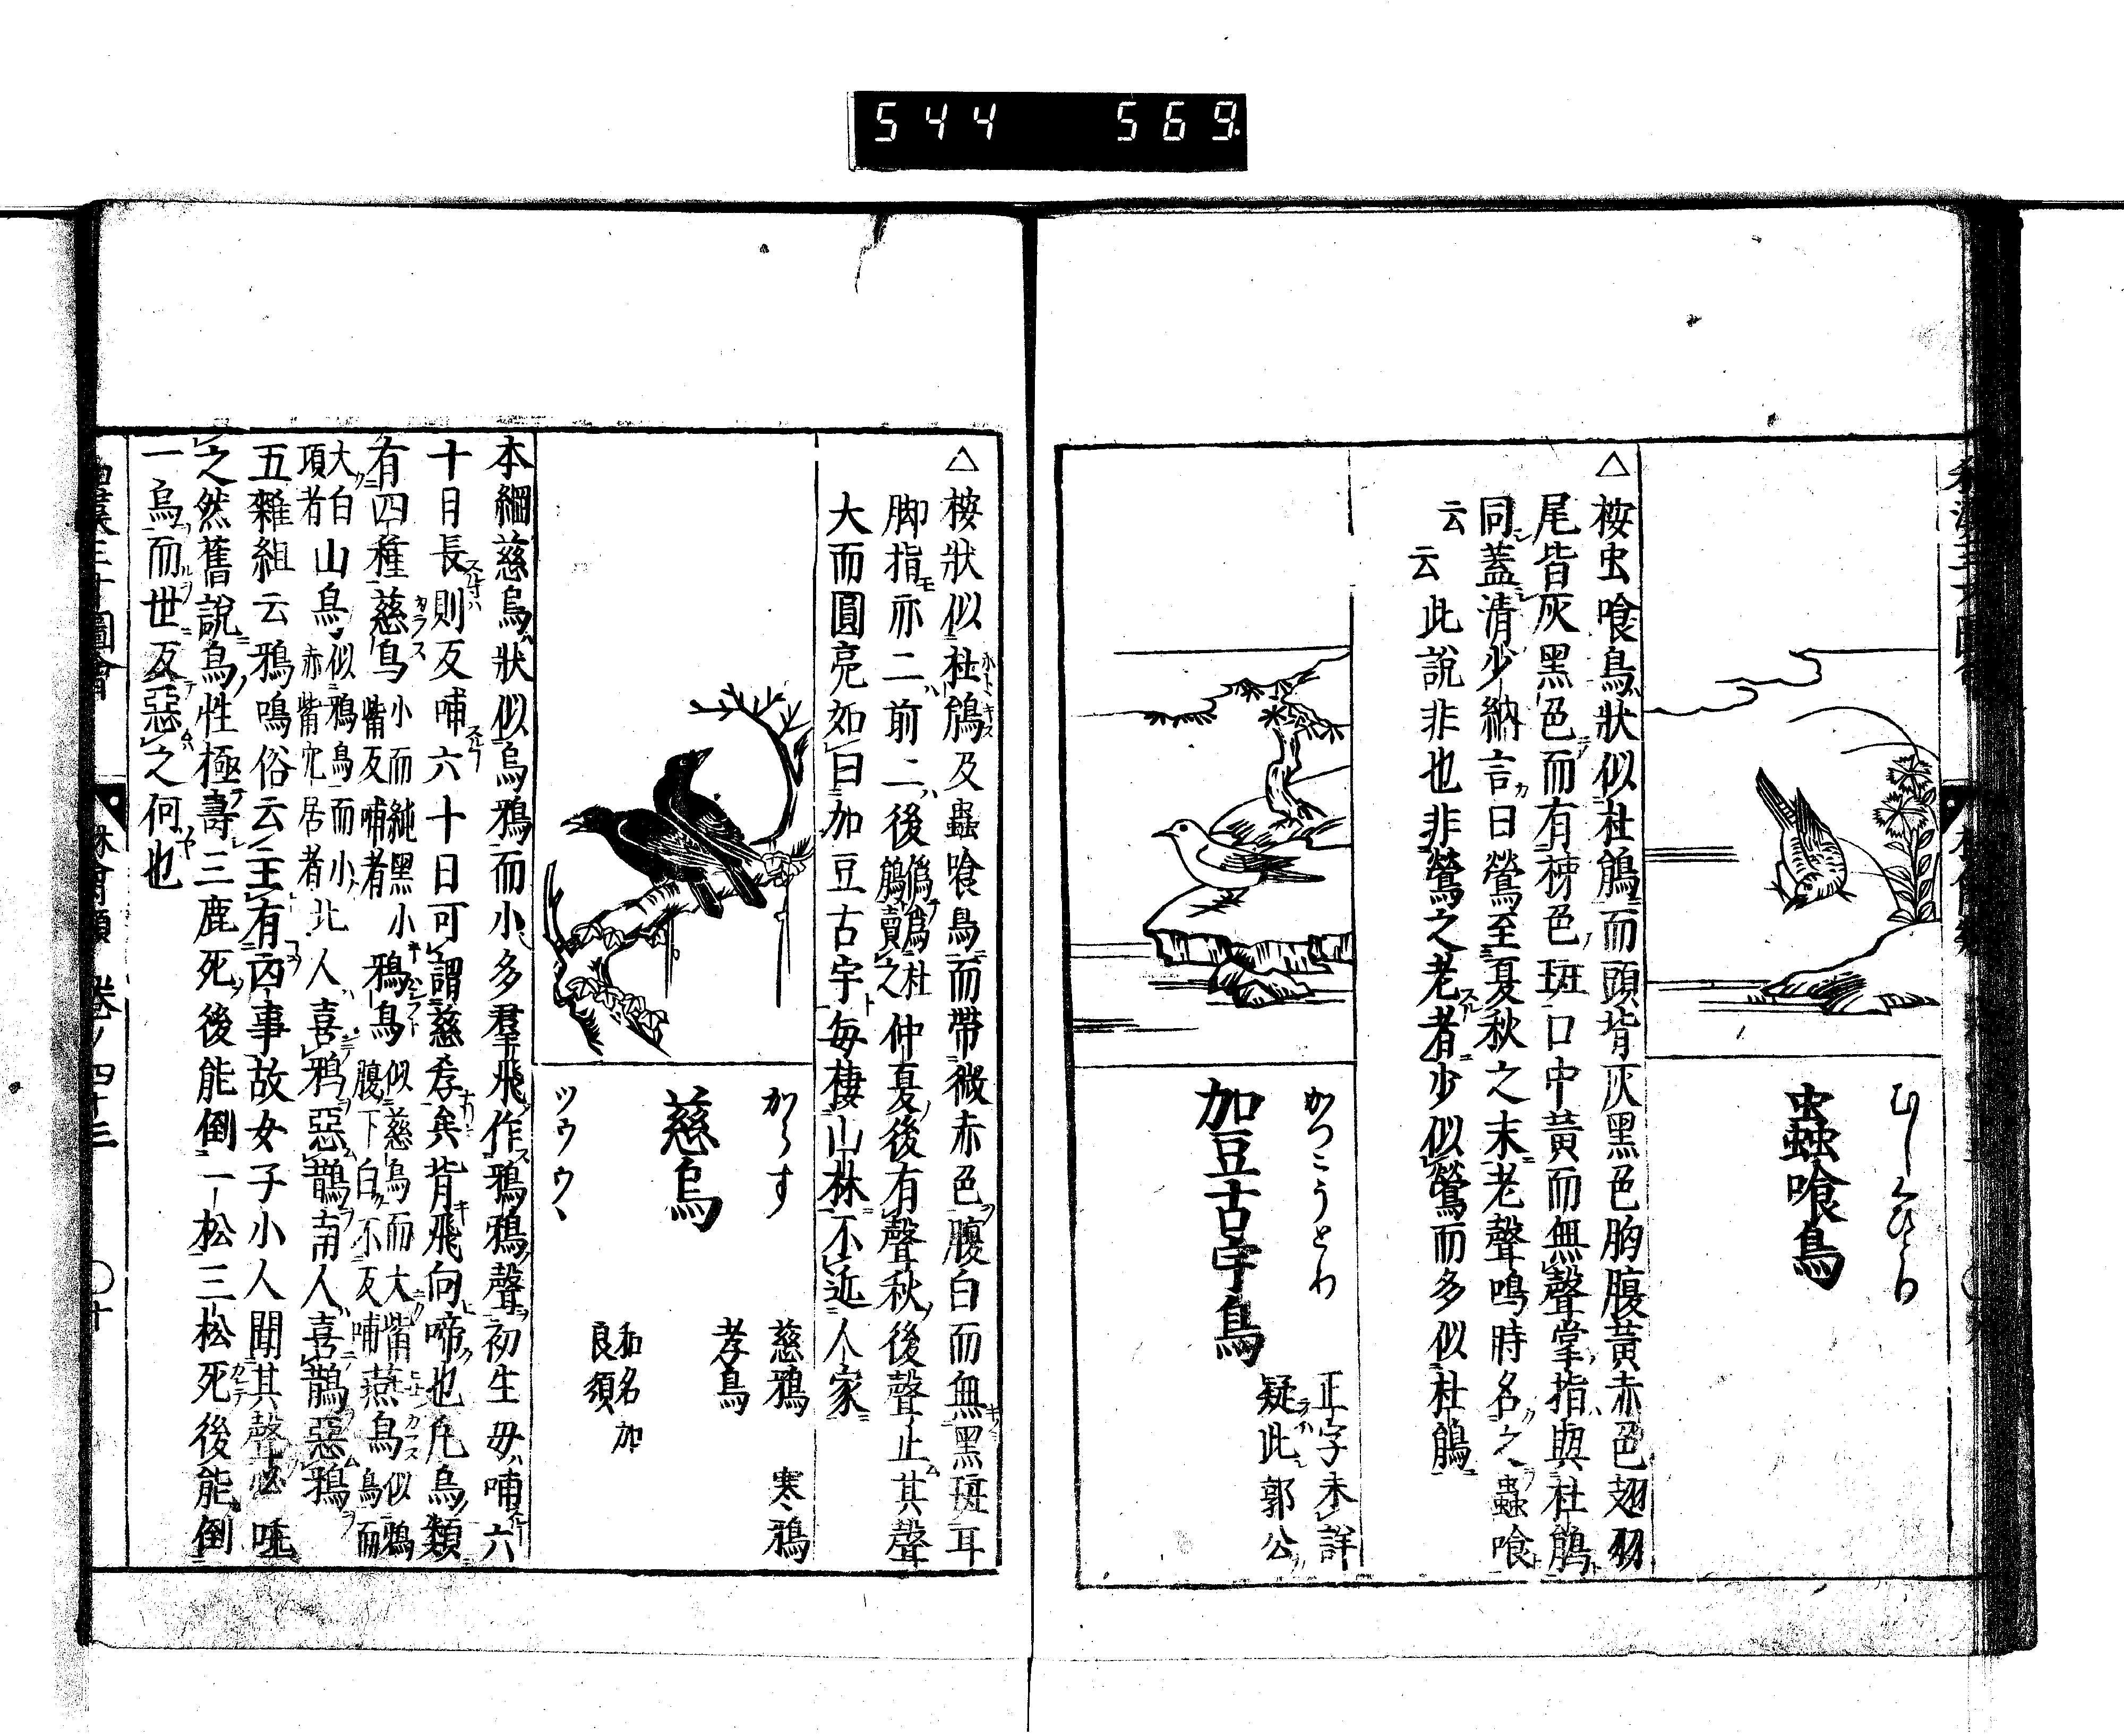 544 569
むしくひどり
蟲喰鳥
△按虫喰鳥狀似杜鵑而頭背灰黑色胸腹黃赤色翅羽
尾皆灰黑色而有棟色斑口中黃而無聲掌指與杜鵑
同蓋清少納言曰鶯至夏秋之末老聲鳴時名之蟲喰
云云此說非也非鶯之老者少似鶯而多似杜鵑
かつこうとり
加豆古宇鳥
正字未詳
疑此郭公
△按狀似杜鵑及蟲喰鳥而帶微赤色腹白而無黑斑耳
脚指亦二前二後僞爲杜鵑賣之仲夏後有聲秋後聲止其聲
大而圓亮如曰加豆古宇每棲山林不近人家
からす
慈烏
ツウウヽ
慈鴉 寒鴉
孝鳥
和名加
良須
本綱慈烏狀似烏鴉而小多羣飛作鴉鴉聲初生母哺六
十日長則反哺六十日可謂慈孝矣背飛向啼也凡烏類
有四種慈烏小而純黑小觜反哺者鴉烏似慈烏而大觜腹下白不反哺燕烏似鴉烏而
大白項者山烏似鴉烏而小赤觜穴居者北人喜鴉惡鵲南人喜鵲惡鴉
五雜組云鴉鳴俗云主有凶事故女子小人聞其聲必唾
之然舊說烏性極壽三鹿死後能倒一松三松死後能倒
一烏而世反惡之何也
林禽類 卷ノ四十三 〇十